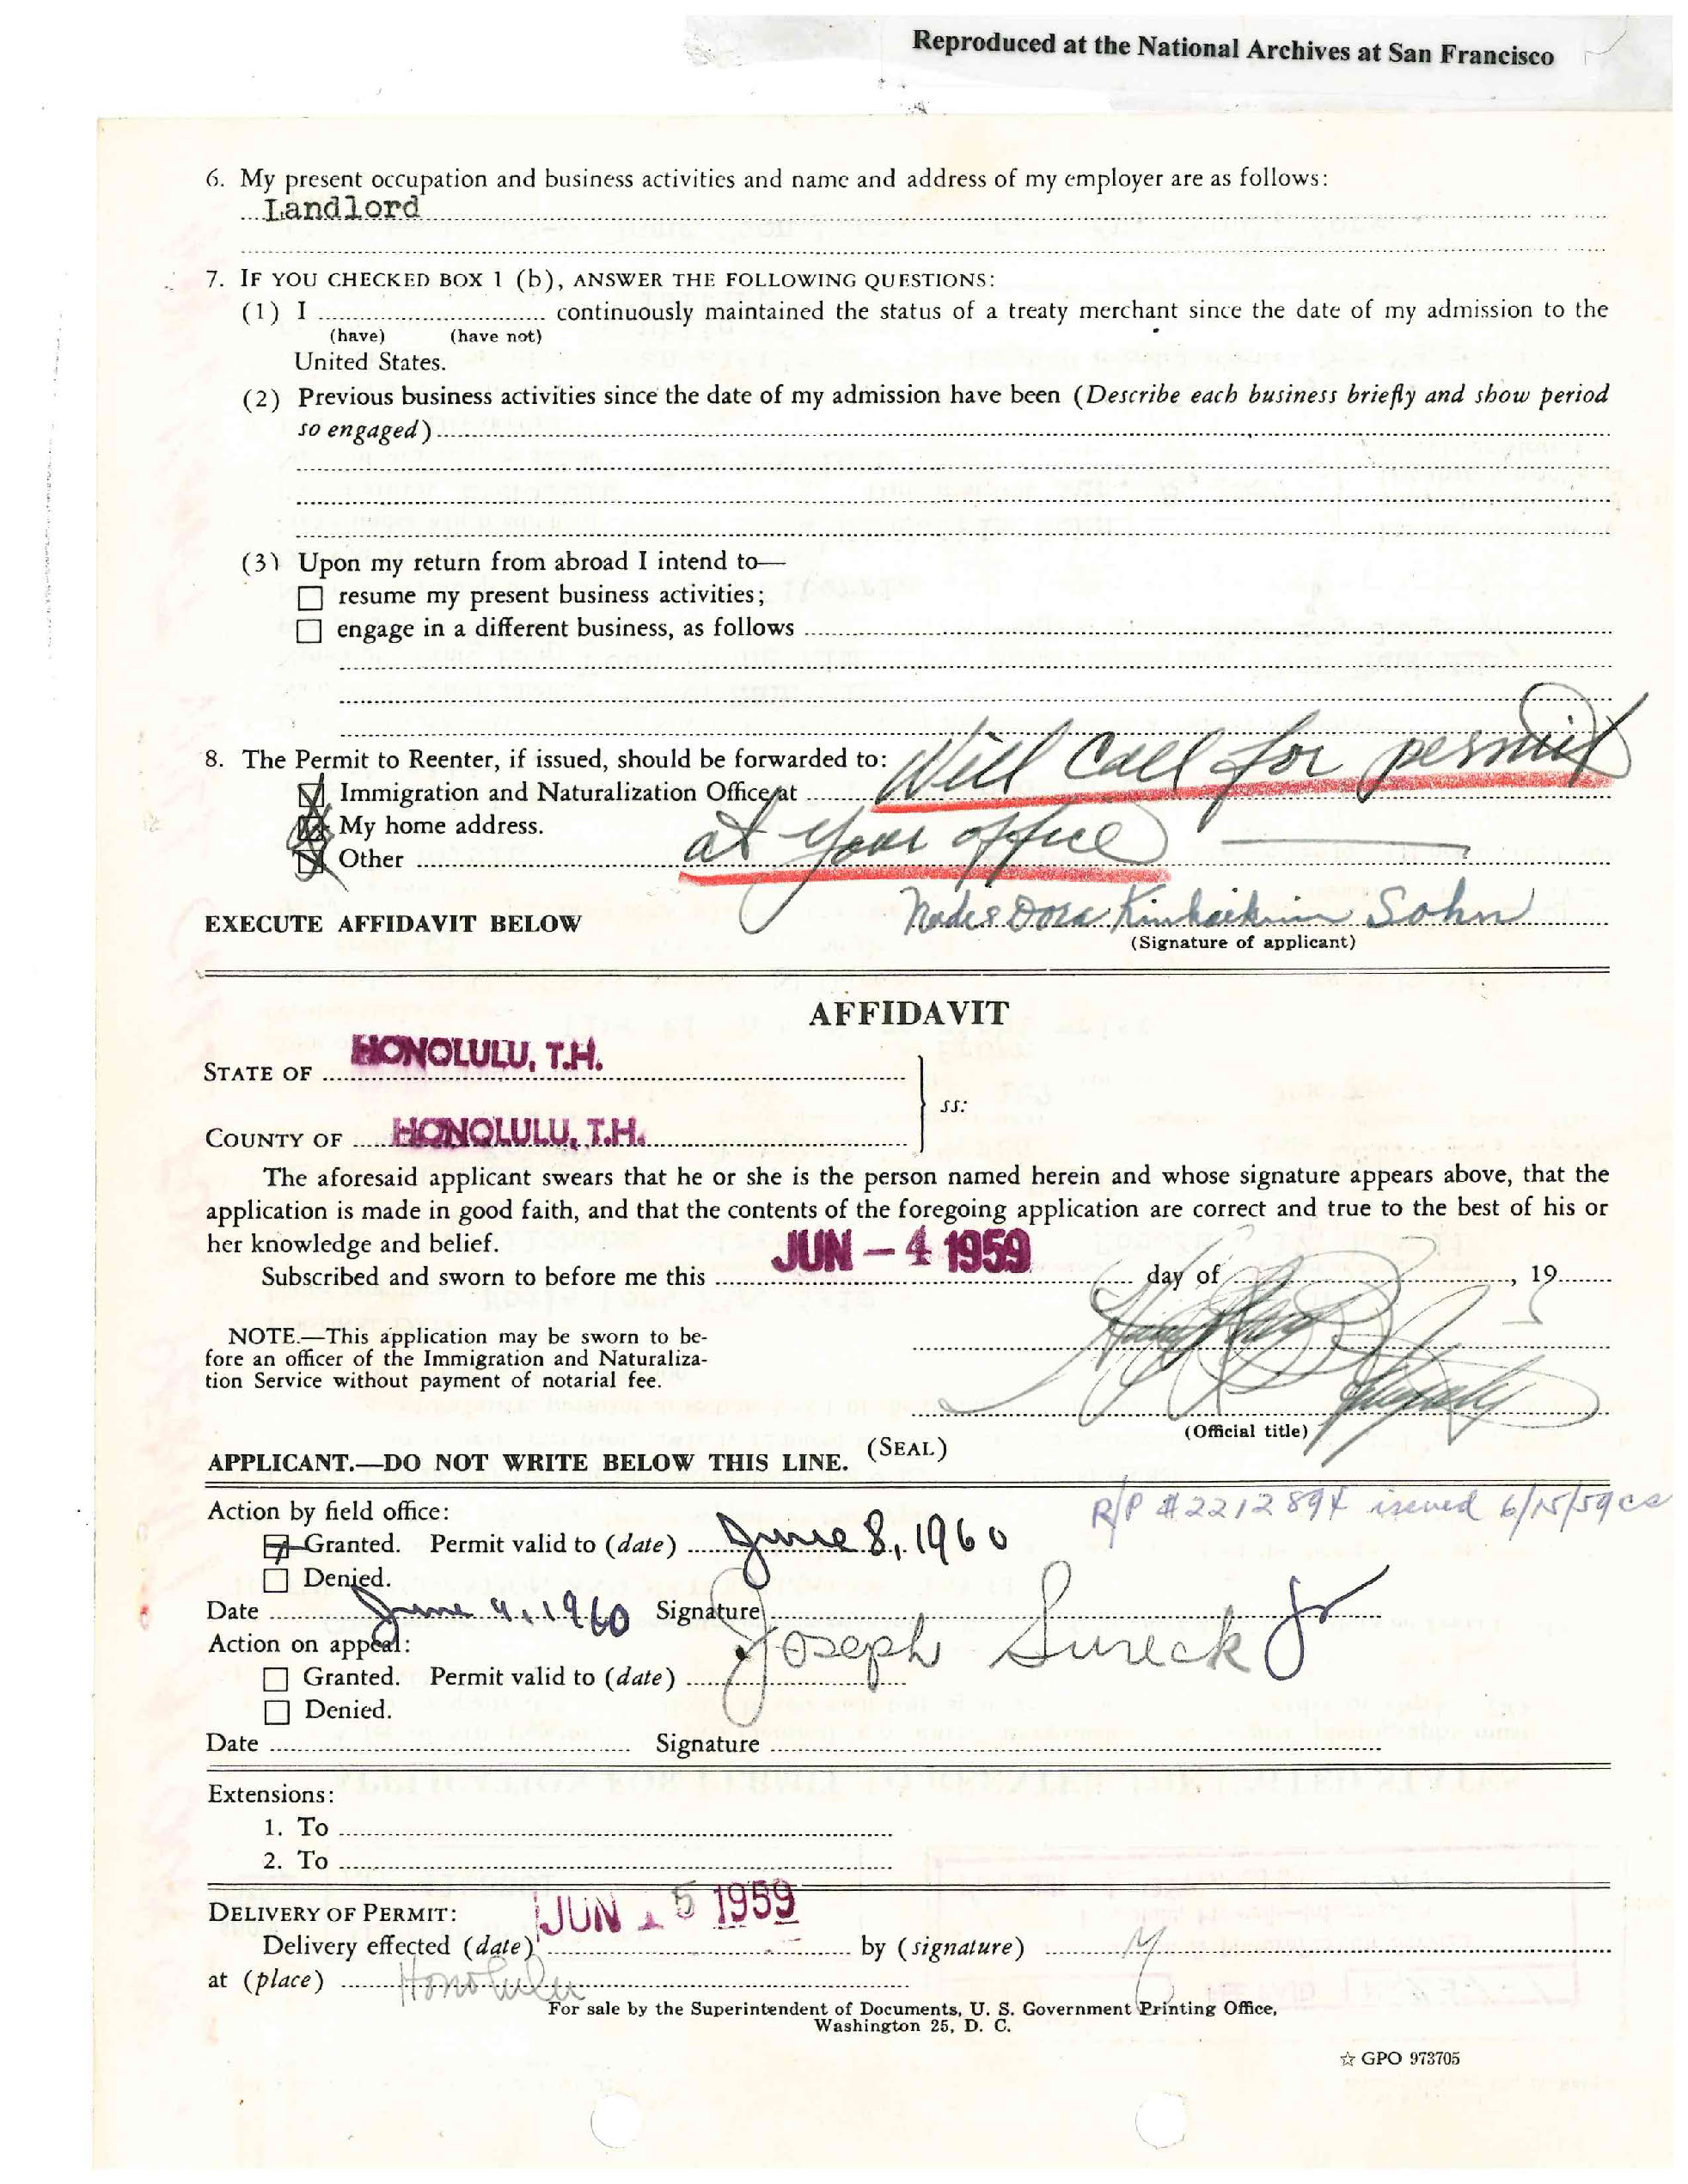 Reproduced at the National Archives at San Francisco
6. My present occupation and business activities and name and address of my employer are as follows:
Landlord
7. IF YOU CHECKED BOX 1 (b), ANSWER THE FOLLOWING QUESTIONS:
(1) I ............ continuously maintained the status of a treaty merchant since the date of my admission to the
(have) (have not)
United States.
(2) Previous business activities since the date of my admission have been (Describe each business briefly and show period
so engaged)
(3) Upon my return from abroad I intend to—
☐ resume my present business activities;
☐ engage in a different business, as follows
8. The Permit to Reenter, if issued, should be forwarded to: Will call for permit
Immigration and Naturalization Office at
My home address. at your office
Other
EXECUTE AFFIDAVIT BELOW Dora Sohn
(Signature of applicant)
AFFIDAVIT
STATE OF HONOLULU, T.H.
ss:
COUNTY OF HONOLULU, T.H.
The aforesaid applicant swears that he or she is the person named herein and whose signature appears above, that the
application is made in good faith, and that the contents of the foregoing application are correct and true to the best of his or
her knowledge and belief.
Subscribed and sworn to before me this JUN - 4 1959 day of , 19
NOTE.—This application may be sworn to be-
fore an officer of the Immigration and Naturaliza-
tion Service without payment of notarial fee.
(Official title)
(SEAL)
APPLICANT.—DO NOT WRITE BELOW THIS LINE.
R/P #2212894 issued 6/15/59 cs
Action by field office:
Granted. Permit valid to (date) June 8, 1960
☐ Denied.
Date June 9, 1960 Signature Joseph Sureck Jr
Action on appeal:
☐ Granted. Permit valid to (date)
☐ Denied.
Date Signature
Extensions:
1. To
2. To
DELIVERY OF PERMIT: JUN 15 1959
Delivery effected (date) by (signature)
at (place) Honolulu
For sale by the Superintendent of Documents, U. S. Government Printing Office,
Washington 25, D. C.
☆ GPO 973705